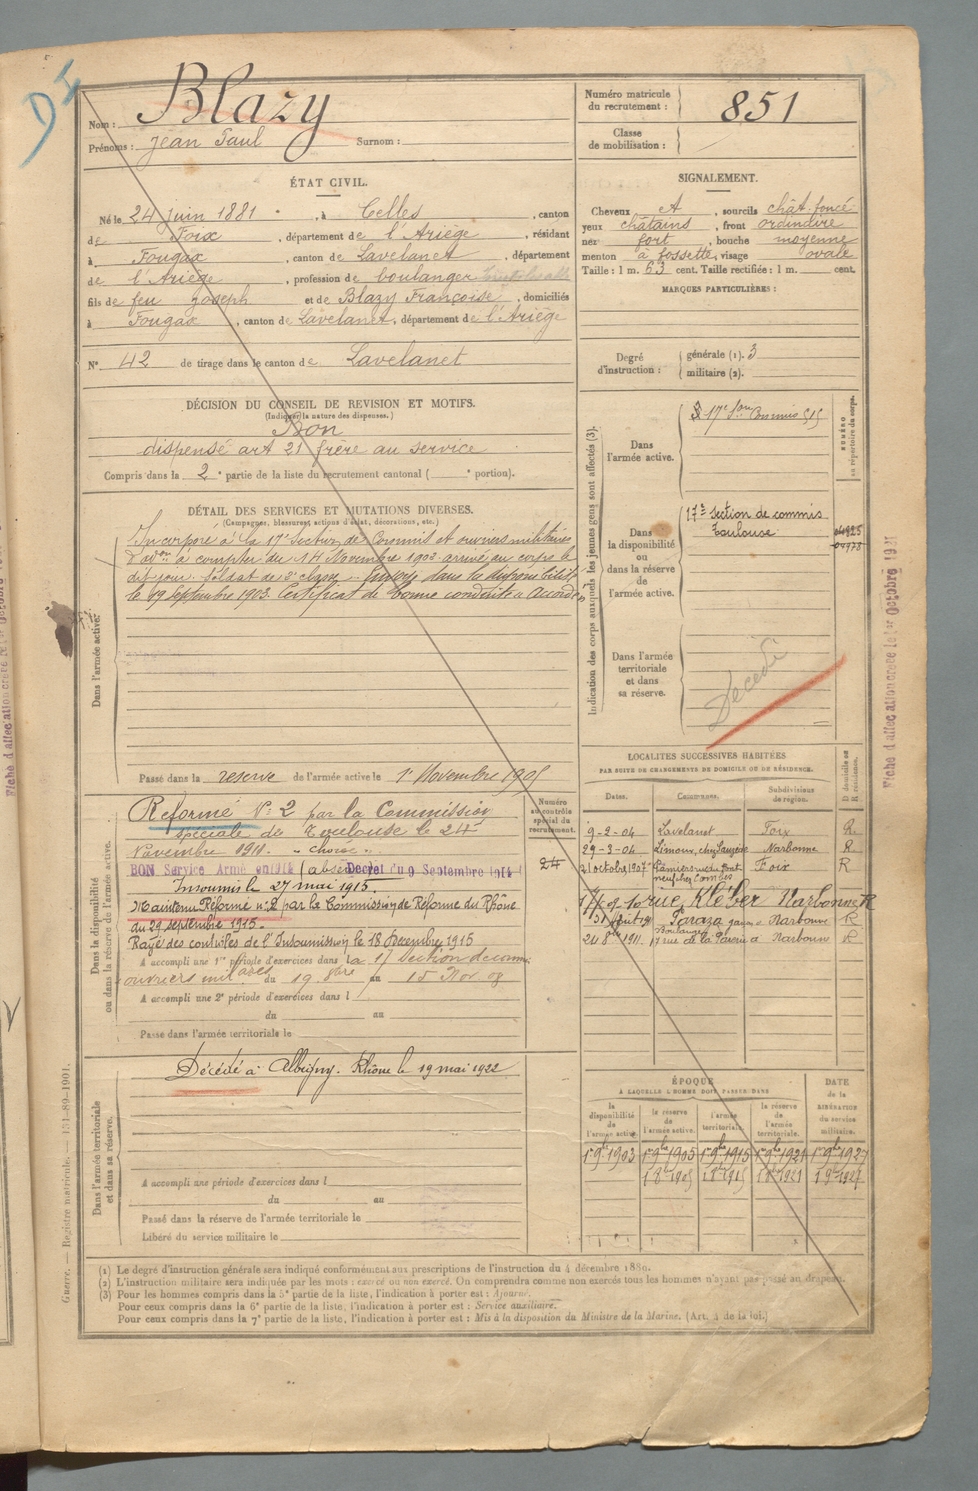 D I
Nom : Blazy
Prénoms : Jean Paul Surnom :
Numéro matricule du recrutement : 851
Classe de mobilisation :
ÉTAT CIVIL.
Né le 24 juin 1881, à Celles, canton
de Foix, département de l'Ariège, résidant
à Fougax, canton de Lavelanet, département
de l'Ariège, profession de boulanger
fils de feu Joseph et de Blazy Françoise, domiciliés
à Fougax, canton de Lavelanet, département de l'Ariège
N° 42 de tirage dans le canton de Lavelanet
SIGNALEMENT.
Cheveux et, sourcils chât. foncé
yeux châtains, front ordinaire
nez fort, bouche moyenne
menton à fossette, visage ovale
Taille : 1 m. 63 cent. Taille rectifiée : 1 m. cent.
MARQUES PARTICULIÈRES :
Degré d'instruction : générale (1). 3
militaire (2).
DÉCISION DU CONSEIL DE REVISION ET MOTIFS.
(Indiquer la nature des dispenses.)
Bon
dispensé art 21 frère au service
Compris dans la 2e partie de la liste du recrutement cantonal ( e portion).
DÉTAIL DES SERVICES ET MUTATIONS DIVERSES.
(Campagnes, blessures, actions d'éclat, décorations, etc.)
Dans l'armée active.
Incorporé à la 17e Section de Commis et ouvriers militaires
d'adon à compter du 14 Novembre 1902 arrivé au corps le
dit jour. Soldat de 2e classe. Envoyé dans la disponibilité
le 19 septembre 1903. Certificat de bonne conduite « Accordé »
Passé dans la réserve de l'armée active le 1er Novembre 1905
Indication des corps auxquels les jeunes gens sont affectés (3).
NUMÉRO au répertoire du corps.
Dans l'armée active.
17e Son Commis
Dans la disponibilité ou dans la réserve de l'armée active.
17e Section de commis
Toulouse
Dans l'armée territoriale et dans sa réserve.
Décédé
Fiche d'affectation créée le 1er Octobre 1921
Dans la disponibilité ou dans la réserve de l'armée active.
Numéro au contrôle spécial du recrutement.
24
Réformé N° 2 par la Commission
spéciale de Toulouse le 24
Novembre 1911.
BON Service Armé (absent) Decret du 9 Septembre 1914
Insoumis le 27 mai 1915.
Maintenu Réformé n° 2 par la Commission de Réforme du Rhône
du 29 septembre 1915.
Rayé des contrôles de l'Insoumission le 18 Décembre 1915
A accompli une 1re période d'exercices dans la 17 Section de commis
ouvriers milaires du 19 8bre au 15 Nov. 08
A accompli une 2e période d'exercices dans l
du au
Passé dans l'armée territoriale le
LOCALITÉS SUCCESSIVES HABITÉES
PAR SUITE DE CHANGEMENTS DE DOMICILE OU DE RÉSIDENCE.
Dates. Communes. Subdivisions de région. D domicile ou R résidence.
9-2-04 Lavelanet Foix R
29-3-04 Limoux, chez Narbonne R
21 octobre 1907 Pamiers rue Pont neuf chez Combes Foix R
rue Kléber Narbonne R
Paraza Narbonne R
24 8bre 1911. 17 rue de la Narbonne R
Dans l'armée territoriale et dans sa réserve.
Décédé à Albigny. Rhône le 19 mai 1922
A accompli une période d'exercices dans l
du au
Passé dans la réserve de l'armée territoriale le
Libéré du service militaire le
ÉPOQUE
À LAQUELLE L'HOMME DOIT PASSER DANS
la disponibilité de l'armée active. la réserve de l'armée active. l'armée territoriale. la réserve de l'armée territoriale. DATE de la LIBÉRATION du service militaire.
1er 9bre 1903 1er 9bre 1905 1er 9bre 1915 1er 9bre 1921 1er 9bre 1927
1 8bre 1905 1 8bre 1915 1 8bre 1921 1 9 1927
(1) Le degré d'instruction générale sera indiqué conformément aux prescriptions de l'instruction du 4 décembre 1889.
(2) L'instruction militaire sera indiquée par les mots : exercé ou non exercé. On comprendra comme non exercés tous les hommes n'ayant pas passé au drapeau.
(3) Pour les hommes compris dans la 5e partie de la liste, l'indication à porter est : Ajourné.
Pour ceux compris dans la 6e partie de la liste, l'indication à porter est : Service auxiliaire.
Pour ceux compris dans la 7e partie de la liste, l'indication à porter est : Mis à la disposition du Ministre de la Marine. (Art. 4 de la loi.)
Guerre. — Registre matricule. — 151-89-1901.